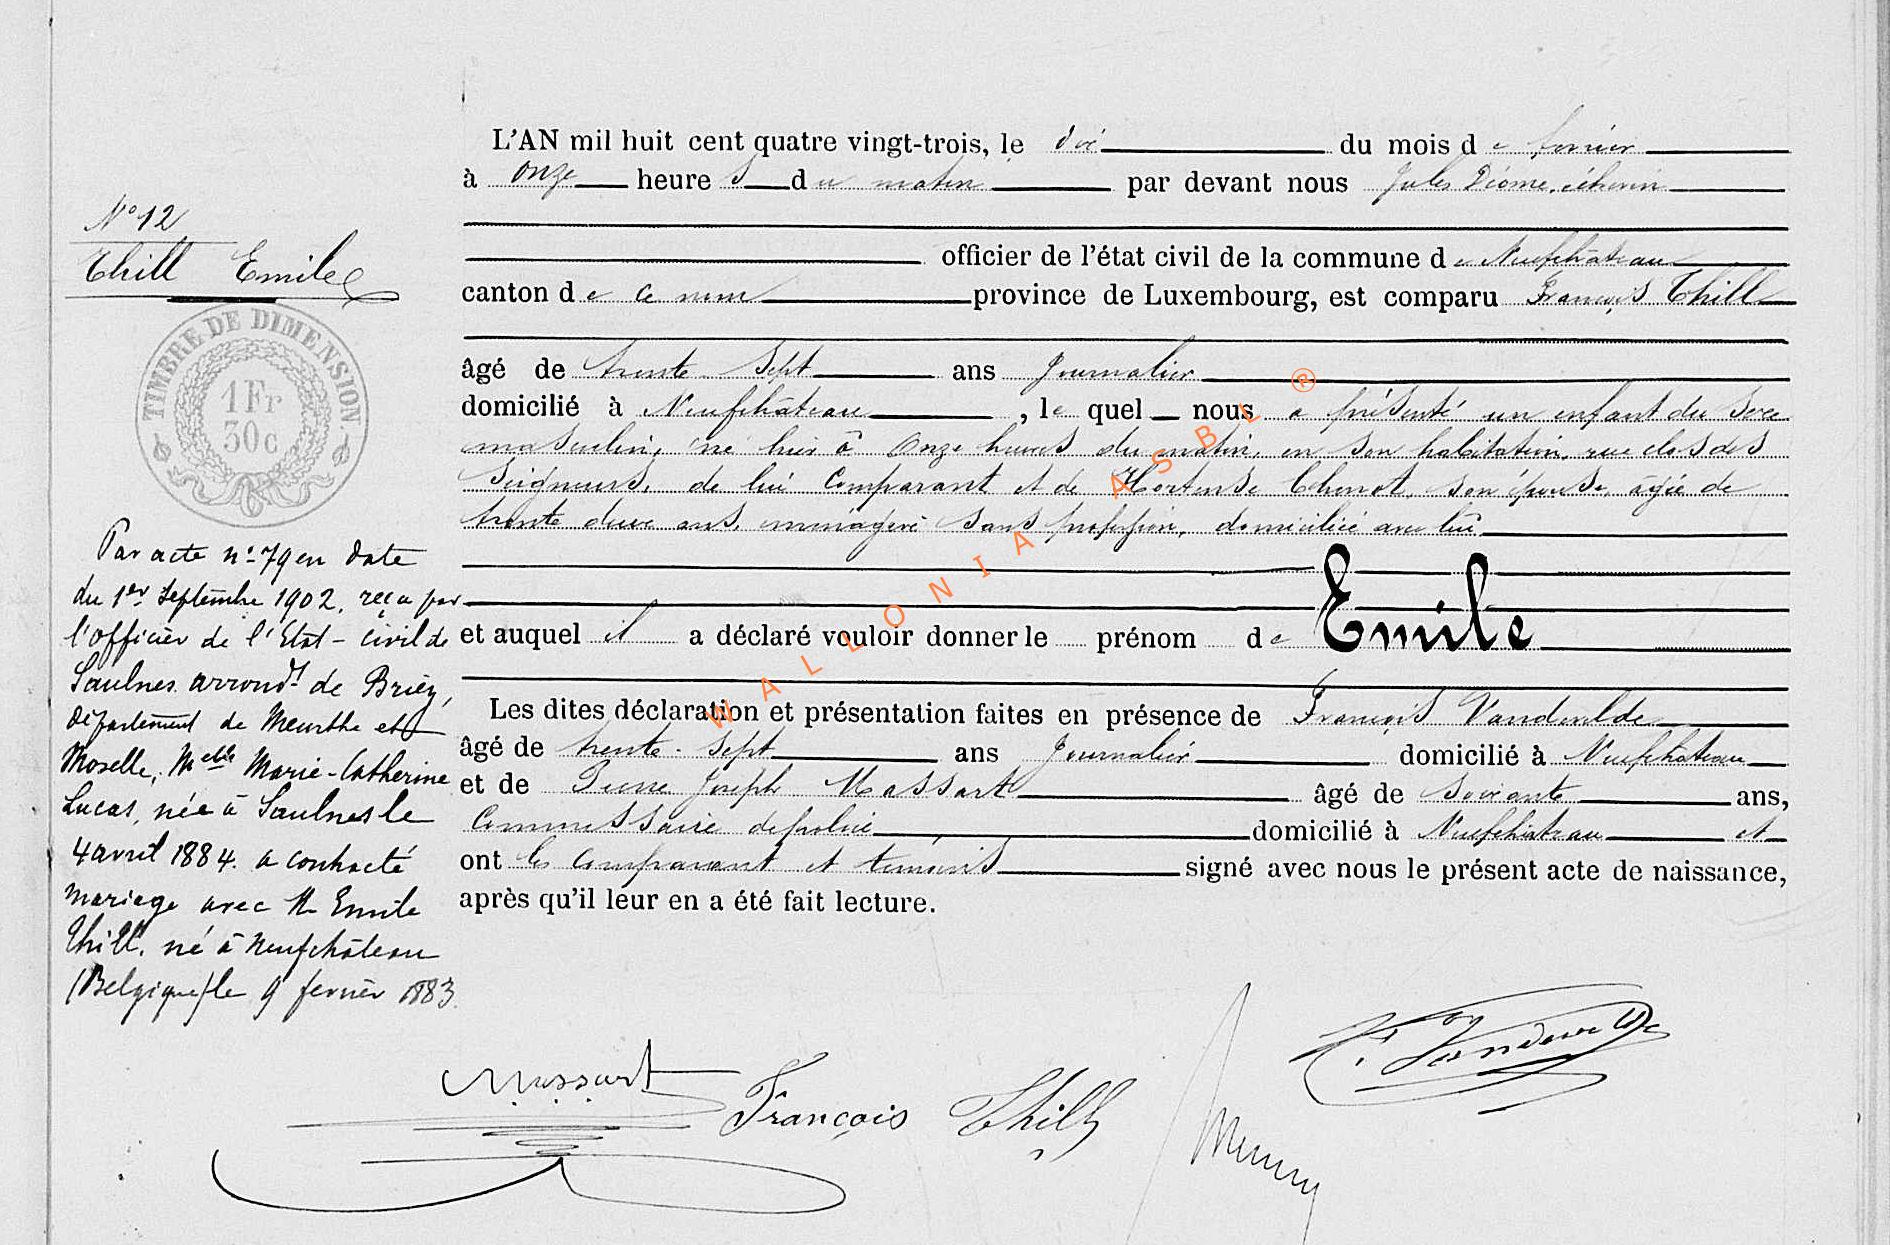 N° 12
Thill Emile
TIMBRE DE DIMENSION
1 Fr
30 c
Par acte n° 79 en date
du 1er Septembre 1902, reçu par
l'officier de l'Etat-civil de
Saulnes arrondt de Briey,
département de Meurthe et
Moselle, Melle Marie-Catherine
Lucas, née à Saulnes le
4 avril 1884. a contracté
mariage avec M Emile
Thill, né à Neufchâteau
(Belgique) le 9 fevrier 1883.
L'AN mil huit cent quatre vingt-trois, le dix du mois de février
à onze heures du matin par devant nous Jules, échevin
officier de l'état civil de la commune de Neufchâteau
canton de ce nom province de Luxembourg, est comparu François Thill
âgé de trente sept ans Journalier
domicilié à Neufchâteau, lequel nous a présenté un enfant du sexe
masculin, né hier à onze heures du matin, en son habitation, rue clos des
Seigneurs, de lui comparant et de Hortense Chenot, son épouse, agée de
trente deux ans, ménagère sans profession, domiciliée avec lui
et auquel il a déclaré vouloir donner le prénom de Emile
Les dites déclaration et présentation faites en présence de François Vandevelde
âgé de trente-sept ans Journalier domicilié à Neufchâteau
et de Pierre Joseph Massart âgé de soixante ans,
Commissaire de police domicilié à Neufchâteau et
ont les comparant et témoins signé avec nous le présent acte de naissance,
après qu'il leur en a été fait lecture.
WALLONIA ASBL ®
Massart
François Thill
F. Vandevelde